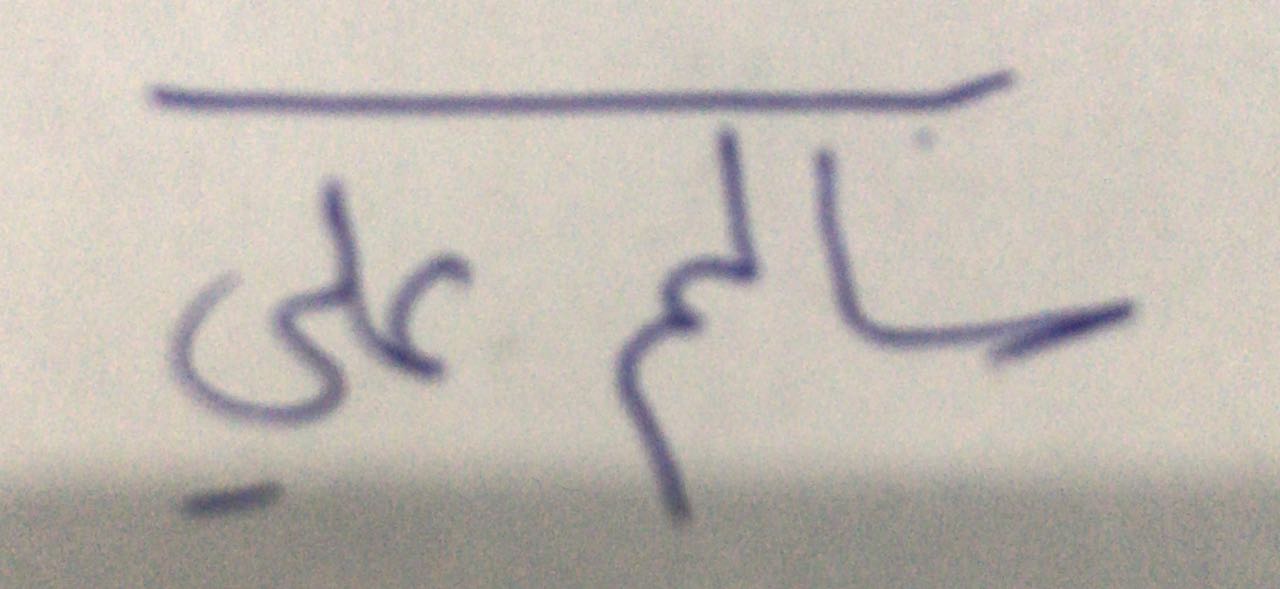 سالم علي